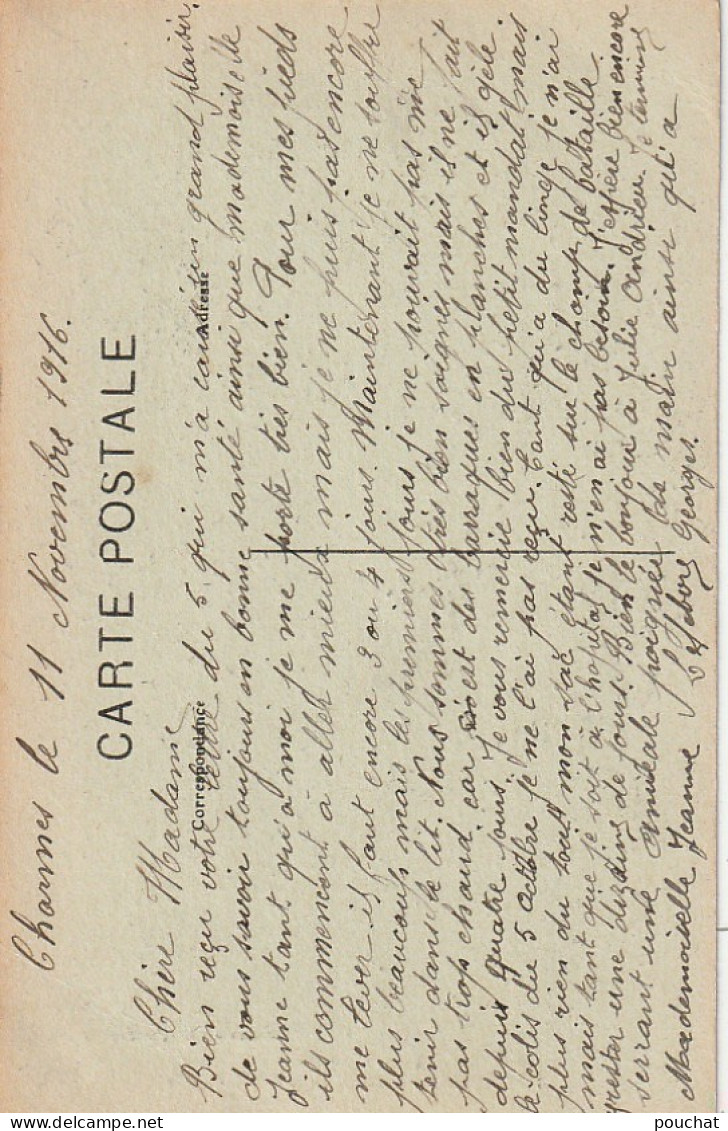 Charmes le 11 Novembre 1916.
CARTE POSTALE
Correspondance
Adresse
Chère Madame
Bien reçu votre lettre du 5 qui m'a causé un grand plaisir.
de vous savoir toujours en bonne santé ainsi que mademoiselle
Jeanne tant qu'à moi je me porte très bien. Pour mes pieds
ils commencent à aller mieux mais je ne puis pas encore
me lever il faut encore 3 ou 4 jours. Maintenant je ne souffre
plus beaucoup mais les premiers jours je ne pouvait pas me
tenir dans le lit. Nous sommes très bien soignés mais il ne fait
pas trop chaud car c'est des barraques en planches et il gèle
depuis quatre jours. je vous remercie bien du petit mandat mais
le colis du 5 octobre je ne l'ai pas reçu. tant qu'a du linge je n'ai
plus rien du tout mon sac étant resté sur le champ de bataille.
mais tant que je soit à l'hopital je n'en ai pas besoin. J'espère bien encore
rester une dizaine de jours. Bien le bonjour à Julie Andrieu. Je termine
serrant une amicale poignée de main ainsi qu'a
Mademoiselle Jeanne
Georges.
pouchat